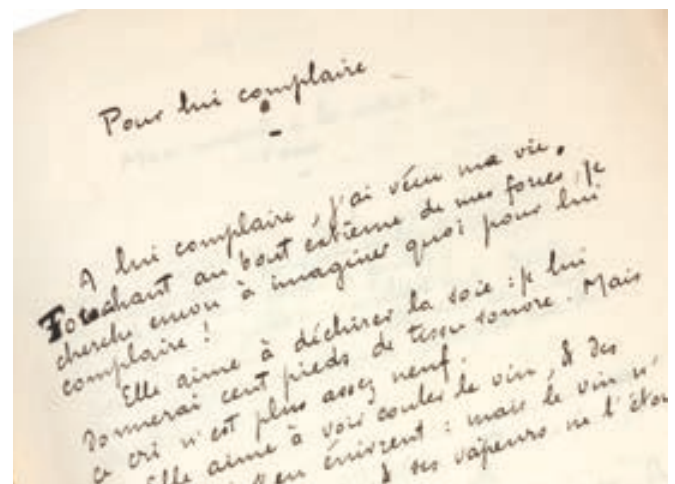 Pour lui complaire
A lui complaire, j'ai vécu ma vie.
Touchant au bout extrême de mes forces, je
cherche encore à imaginer quoi pour lui
complaire !
Elle aime à déchirer la soie : je lui
donnerai cent pieds de tissu sonore. Mais
ce cri n'est plus assez neuf.
Elle aime à voir couler le vin, & des
s'en enivrent : mais le vin n'
& ses vapeurs ne l'éton